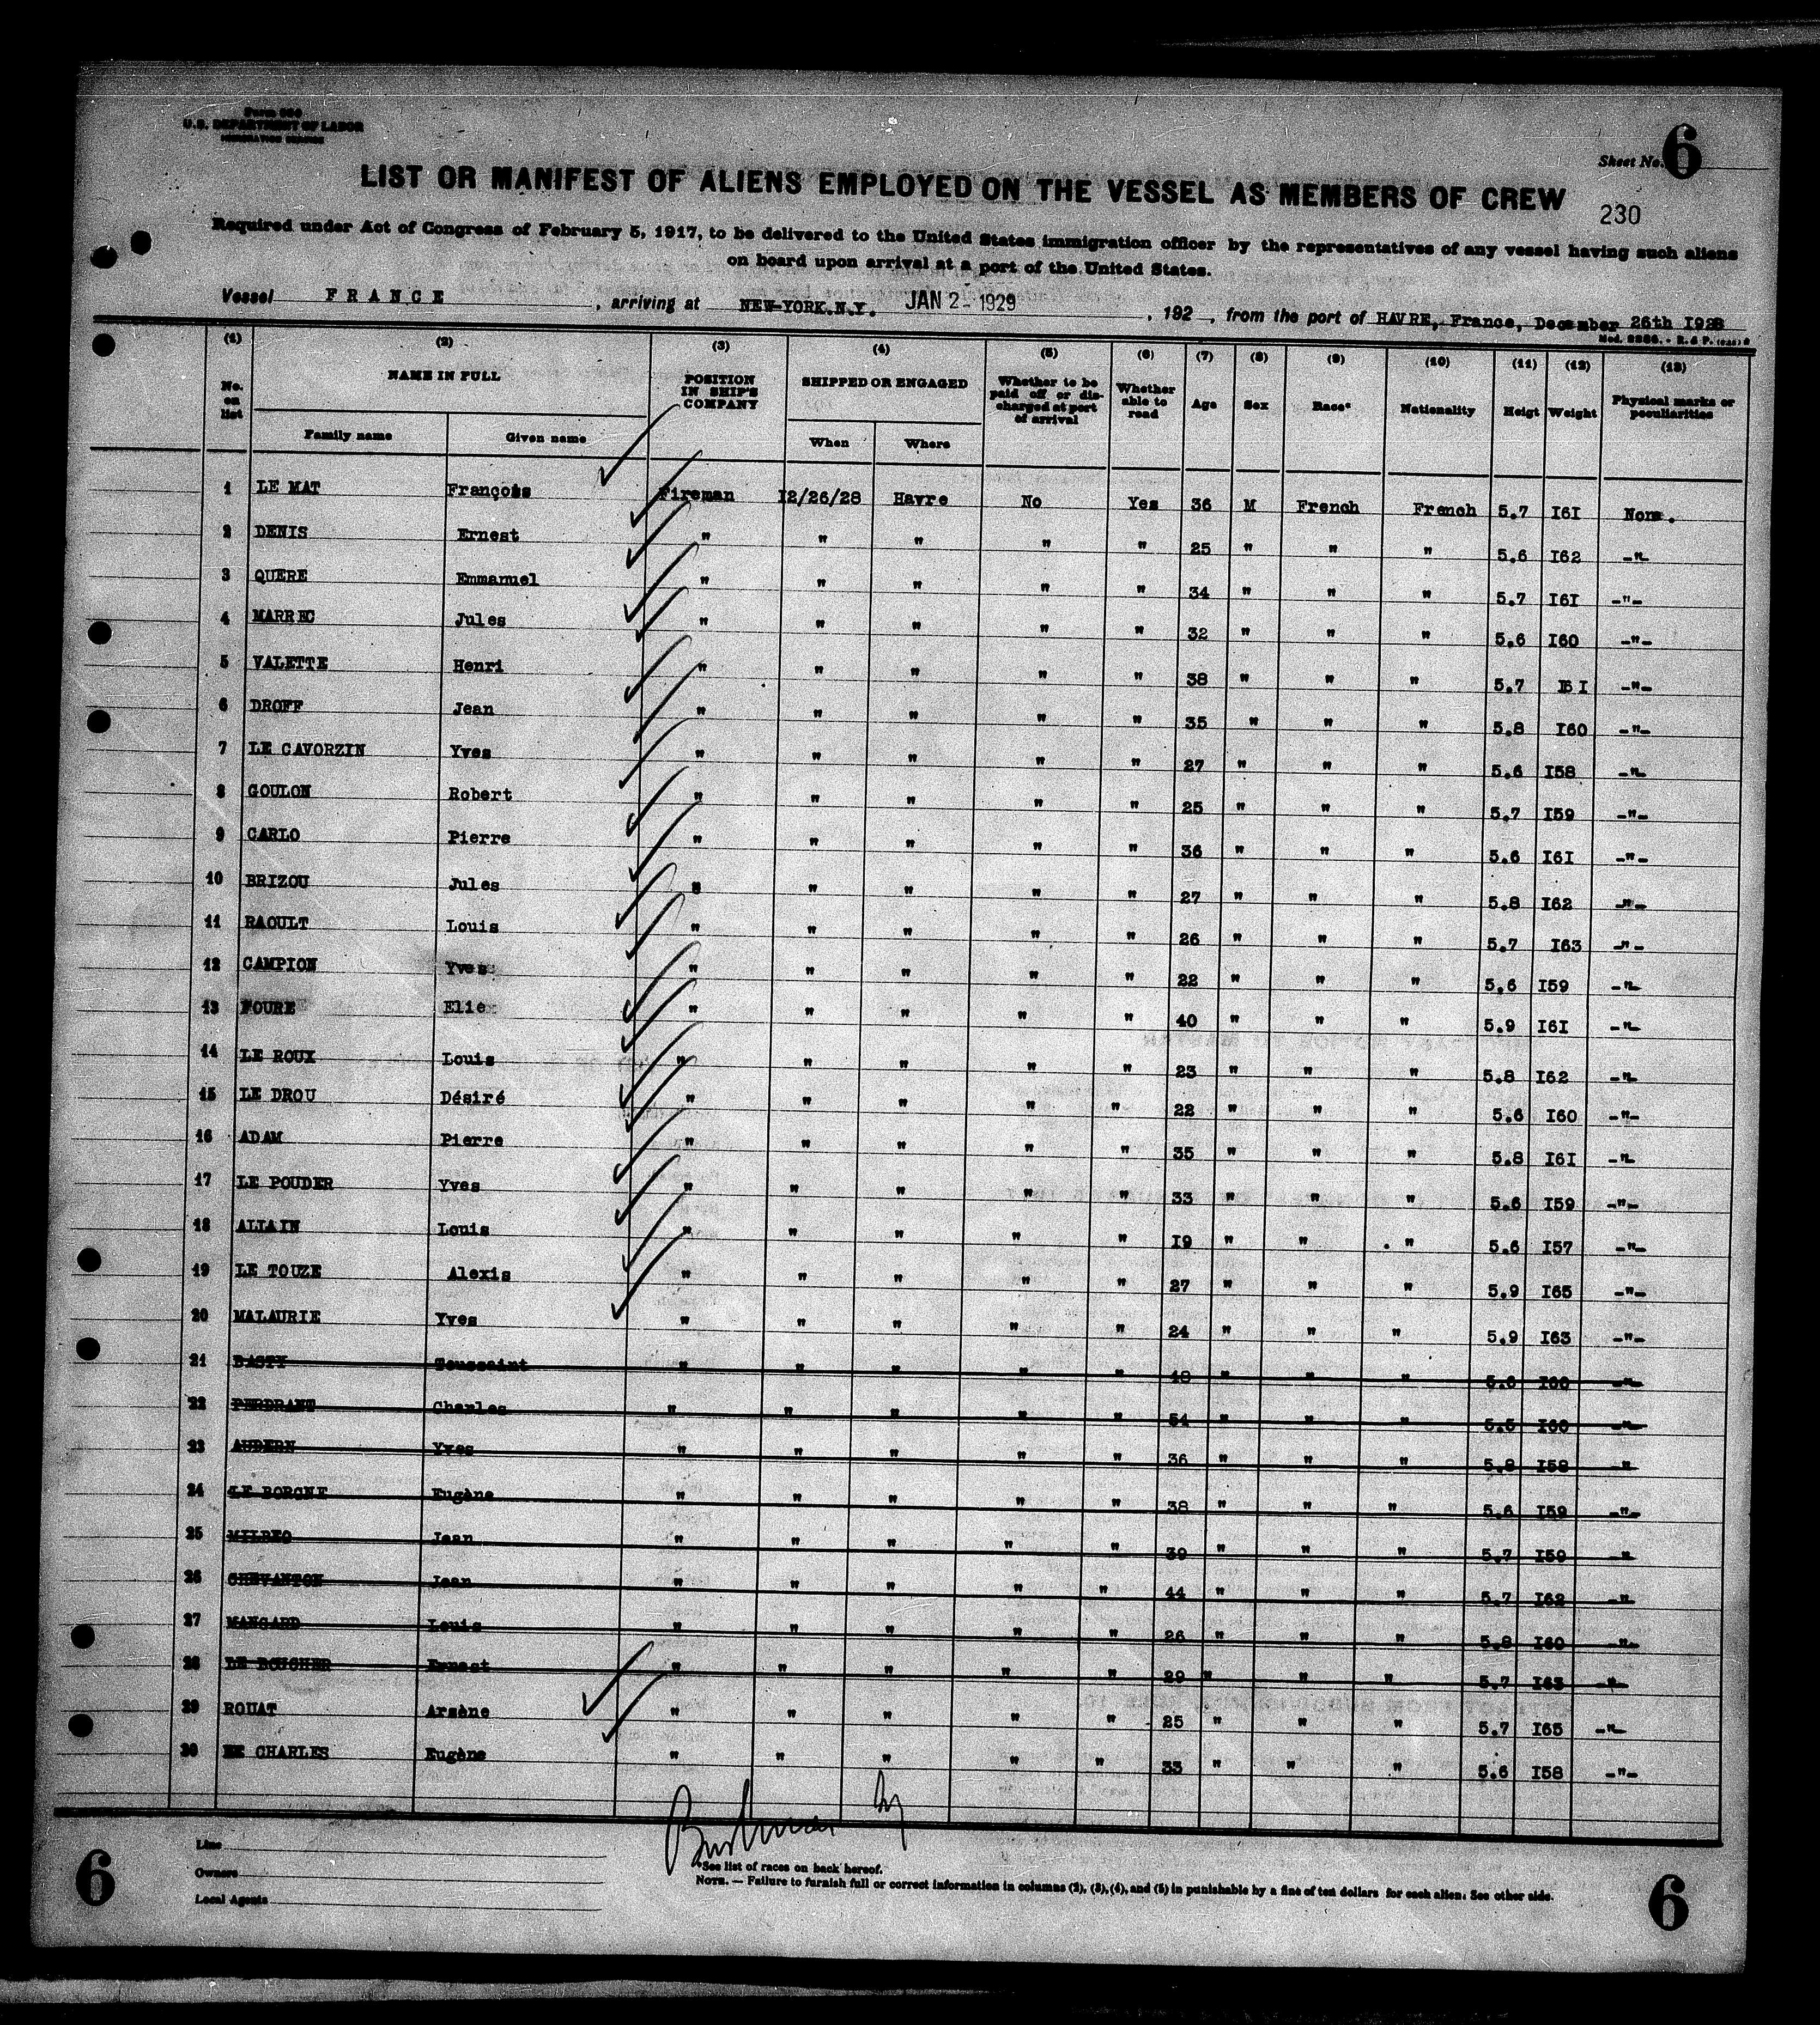 Form 680
U.S. DEPARTMENT OF LABOR
IMMIGRATION SERVICE
Sheet No. 6
LIST OR MANIFEST OF ALIENS EMPLOYED ON THE VESSEL AS MEMBERS OF CREW
230
Required under Act of Congress of February 5, 1917, to be delivered to the United States immigration officer by the representatives of any vessel having such aliens
on board upon arrival at a port of the United States.
Vessel FRANCE, arriving at NEW-YORK.N.Y. JAN 2 - 1929, 192 , from the port of HAVRE, France, December 26th I928
(1) (2) (3) (4) (5) (6) (7) (8) (9) (10) (11) (12) (13)
No. on list NAME IN FULL Family name Given name POSITION IN SHIP'S COMPANY SHIPPED OR ENGAGED When Where Whether to be paid off or discharged at port of arrival Whether able to read Age Sex Race* Nationality Heigt Weight Physical marks or peculiarities
1 LE MAT François Fireman I2/26/28 Havre No Yes 36 M French French 5.7 I6I None.
2 DENIS Ernest " " " " " 25 " " " 5.6 I62 -"-
3 QUERE Emmanuel " " " " " 34 " " " 5.7 I6I -"-
4 MARREC Jules " " " " " 32 " " " 5.6 I60 -"-
5 VALETTE Henri " " " " " 38 " " " 5.7 -"-
6 DROFF Jean " " " " " 35 " " " 5.8 I60 -"-
7 LE CAVORZIN Yves " " " " " 27 " " " 5.6 I58 -"-
8 GOULON Robert " " " " " 25 " " " 5.7 I59 -"-
9 CARLO Pierre " " " " " 36 " " " 5.6 I6I -"-
10 BRIZOU Jules " " " " " 27 " " " 5.8 I62 -"-
11 RAOULT Louis " " " " " 26 " " " 5.7 I63 -"-
12 CAMPION Yves " " " " " 22 " " " 5.6 I59 -"-
13 FOURE Elie " " " " " 40 " " " 5.9 I6I -"-
14 LE ROUX Louis " " " " " 23 " " " 5.8 I62 -"-
15 LE DROU Désiré " " " " " 22 " " " 5.6 I60 -"-
16 ADAM Pierre " " " " " 35 " " " 5.8 I6I -"-
17 LE POUDER Yves " " " " " 33 " " " 5.6 I59 -"-
18 ALLAIN Louis " " " " " I9 " " " 5.6 I57 -"-
19 LE TOUZE Alexis " " " " " 27 " " " 5.9 I65 -"-
20 MALAURIE Yves " " " " " 24 " " " 5.9 I63 -"-
21 BASTY Toussaint " " " " " " " " 5.6 I60 -"-
22 PERDRANT Charles " " " " " 54 " " " 5.5 I60 -"-
23 AUBERN Yves " " " " " 36 " " " 5.8 I58 -"-
24 LE BORGNE Eugène " " " " " 38 " " " 5.6 I59 -"-
25 MILBEO Jean " " " " " 39 " " " 5.7 I59 -"-
26 CHEVANTON Jean " " " " " 44 " " " 5.7 I62 -"-
27 MANGARD Louis " " " " " 26 " " " 5.8 I60 -"-
28 LE BOUCHER Ernest " " " " " 29 " " " 5.7 I63 -"-
29 ROUAT Arsène " " " " " 25 " " " 5.7 I65 -"-
30 LE CHARLES Eugène " " " " " 33 " " " 5.6 I58 -"-
Line
Owners
Local Agents
*See list of races on back hereof.
NOTE. — Failure to furnish full or correct information in columns (2), (3), (4), and (5) in punishable by a fine of ten dollars for each alien. See other side.
6
6